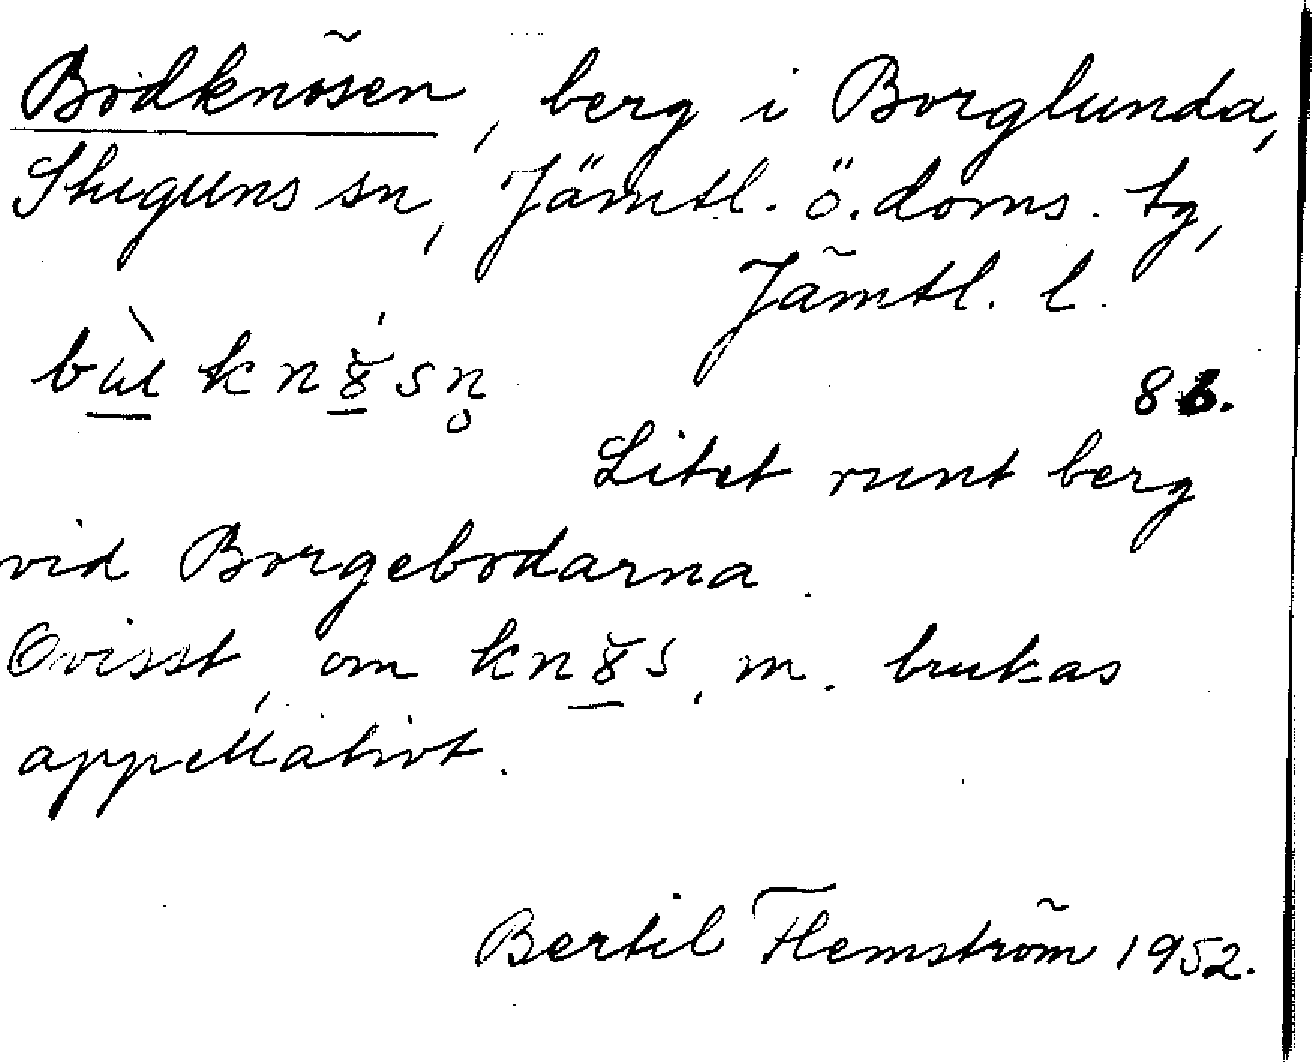 Bodknösen, berg i Borglunda,
Stuguns sn, Jämtl. ö. doms. tg,
Jämtl. l.
Litet runt berg
vid Borgebodarna.
Ovisst, om m. brukas
appellativt.
Bertil Flemström 1952.